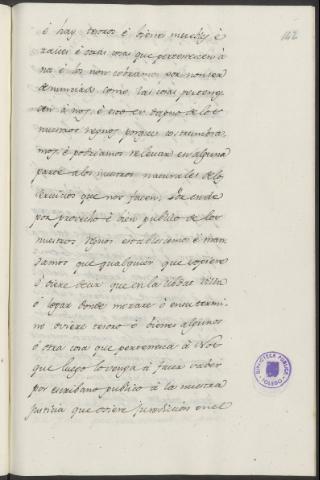 142
è hay tesoros è bienes muebles è
raices è otras cosas que pertenescen à
nos è los non cobramos por non ser
denunciado como tales cosas pertenez-
can à nos: è esto es dapno de los
nuestros regnos porque acostumbra-
mos, è podriamos relevar en alguna
parte a los nuestros naturales de los
servicios que nos facen. Por ende
por provecho è bien publico de los
nuestros regnos establescemos è man-
damos que qualquier que sopiere
ò oiere decir que en la cibdat villa
ò logar donde morare ò en su termi-
no oviere tesoro ò bienes algunos
ò otra cosa que pertenezca à Nos
que luego lo venga à facer saber
por escribano publico à la nuestra
Justicia que oviere jurediccion en el
BIBLIOTECA PUBLICA
TOLEDO